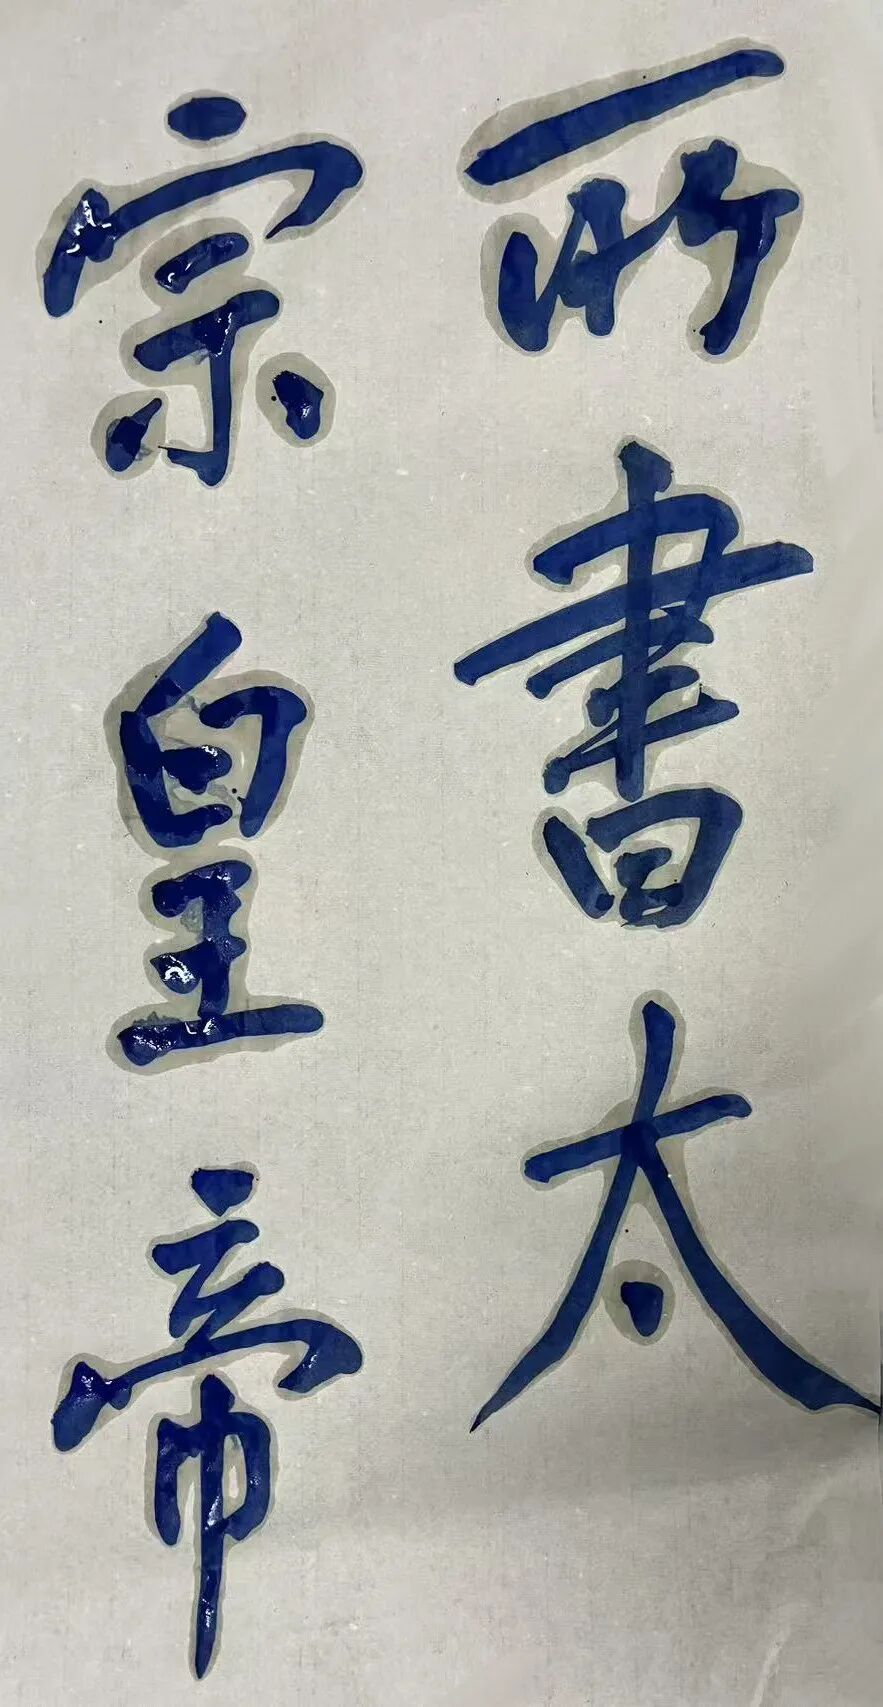 所書太
宗皇帝